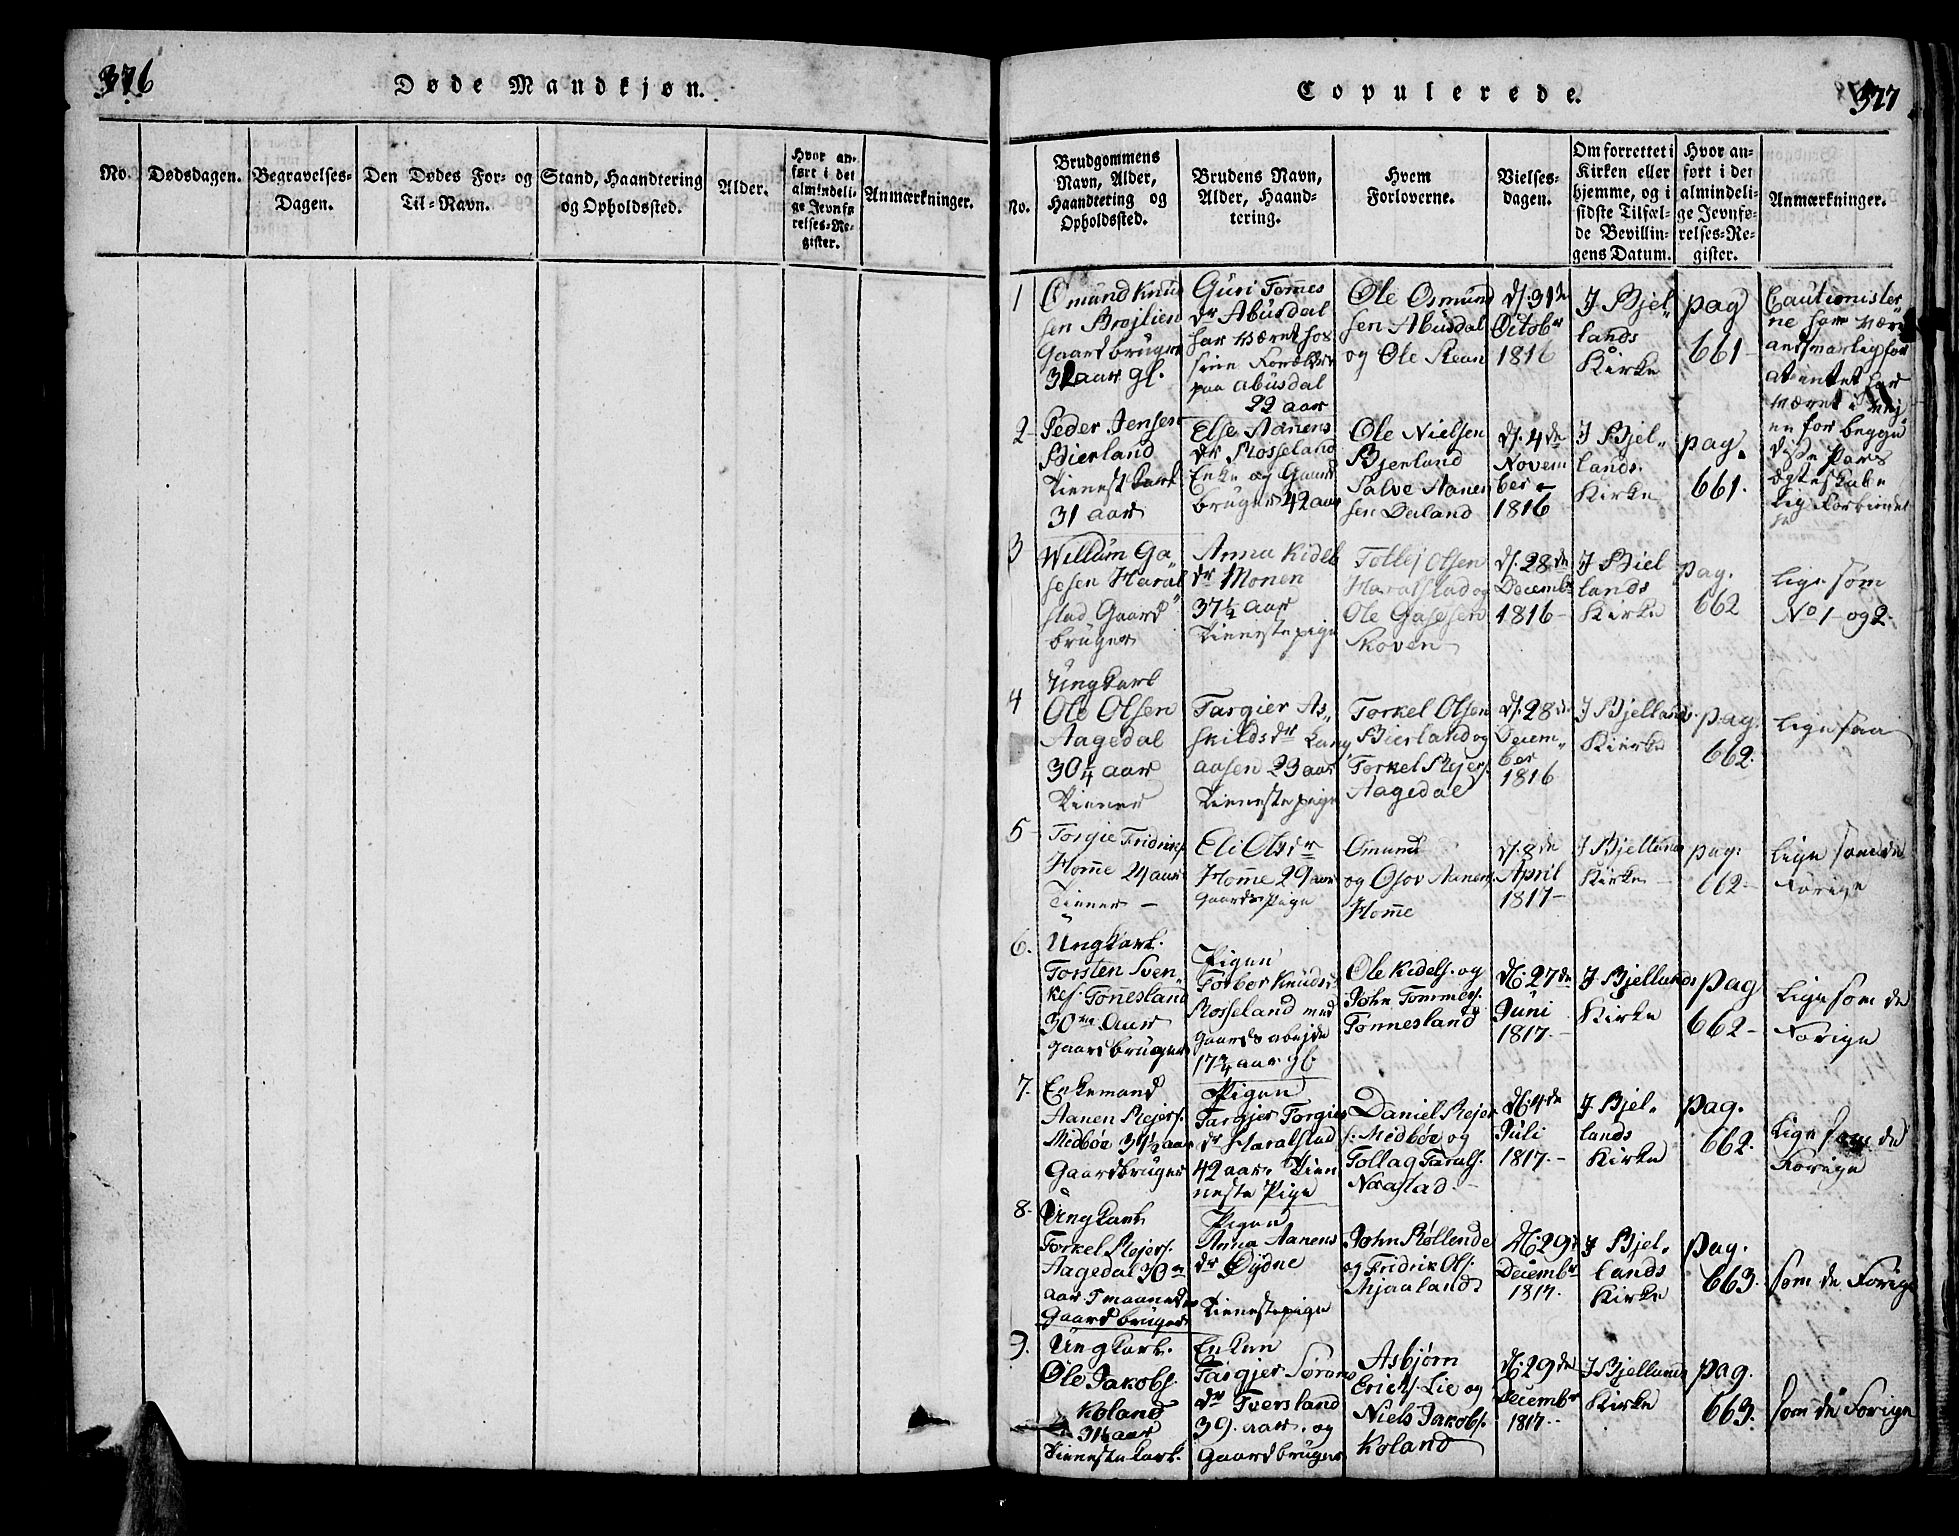 376
Døde Mandkjøn.
No.
Dødsdagen.
Begravelses-
Dagen.
Den Dødes For- og
Til-Navn.
Stand, Haandtering
og Opholdssted.
Alder.
Hvor an-
ført i det
almindeli-
ge Jevnfø-
relses-Re-
gister.
Anmærkninger.
Copulerede.
377
No.
Brudgommens
Navn, Alder,
Haandtering og
Opholdssted.
Brudens Navn,
Alder, Haand-
tering.
Hvem
Forloverne.
Vielses-
dagen.
Om forrettet i
Kirken eller
hjemme, og i
sidste Tilfæl-
de Bevillin-
gens Datum.
Hvor an-
ført i det
almindeli-
ge Jevnfø-
relses-Re-
gister.
Anmærkninger.
1
Omund Knud
sen Brøjlien
Gaardbruger
aar gl.
Guri Tommes
dr Abusdal
har været hos
sine Forældre
paa Abusdal
22 aar
Ole Osmund
sen Abusdal
og Ole Steen
d. 31te
Octobr
1816
I Bjel„
lands
Kirke
pag
661
Cautionister„
ne har være
ansvarlig for
at intet har
været i Vej
en for begge
disse pars
ægteskabe
lig Forbindel
se
2
Peder Jensen
Bierland
Tienestkarl
31 aar
Else Aanens
dr Rosseland
Enke og Gaard
bruger 42 aar
Ole Nielsen
Bjerland
Salve Aanen
sen Daland
d. 4de
Novem
ber
1816
I Bjel„
lands
Kirke
pag.
661.
3
Willum Ga
sesen Haral
stad Gaard
bruger
Anna Kidels
dr Monen
37½ aar
Tienestepige
Tollej Olsen
Haralstad og
Ole Gasesen
Skoven
d. 28de
Decembr
1816
I Biel
lands
Kirke
pag.
662
lige som
No 1 og 2
4
Ungkarl
Ole Olsen
Aagedal
30¼ aar
Tiener
Targier As„
skilds dr Lang
aasen 23 aar
Tienestepige
Torkel Olsen
Bierland og
Torkel Rejers.
Aagedal
d. 28de
Decem„
ber
1816
I Bjellands
Kierke
pag.
662.
lige saa
5
Torgie Fridriks.
Homme 24 aar
Tiener
Eli Ols dr
Homme 29 aar
Gaards Pige
Omund
og Osov Aanens.
Homme
d. 8de
April
1817
I Bjellands
Kirke
pag.
662
lige som de
Forige
6.
Ungkarl.
Torsten Sven
kes. Tonnesland
30 Aar
gaardbruger
Pigen
Torbor Knuds
Rosseland med
gaards arbejde
17¾ aar gl.
Ole Kidels. og
John Tommes.
Tonnesland
d. 27de
Juni
1817.
I Bjellands
Kirke
pag
662
lige som de
Forige
7.
Enkemand
Aanen Rejers.
Midbøe aar
Gaardbruger
Pigen
Targjer Torgies
dr Haralstad
42 aar. Tien
neste Pige
Daniel Rejer
s. Midbøe og
Tollag Tarals.
Næstad
d. 4de
Juli
1817.
I Bjel„
lands
Kirke
pag.
662.
lige som de
Forige
8.
Ungkarl
Torkel Rejers.
Aagedal 30
aar 5 maaneder
Gaardbruger
Pigen
Anna Aanens
dr Øydne
Tienestepige
John Røllende
og Fridrik Ols.
Mjaaland
d. 29
Decembr
1817.
I Bjel„
lands
Kirke
pag.
663.
som de Forige
9.
Ungkarl.
Ole Jakobs.
Koland
31 aar
Tieneste karl.
Enken
Targjer Sørens
dr Tversland
39 aar, og
Gaardbruger
Asbjørn
Erichs. Lie og
Niels Jakobs.
Koland
d. 29de
Decembr
1817.
I Bjellands
Kirke
pag.
663.
som de Forige